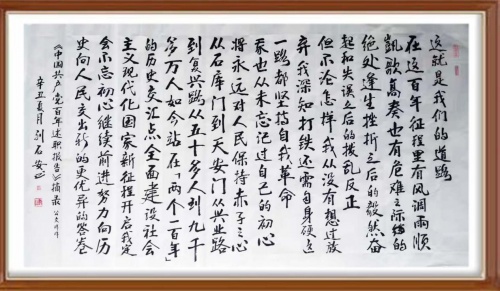 这就是我们的道路
在这百年征程里有风调雨顺
凯歌高奏也有危难之际的
绝处逢生挫折之后的毅然奋
起和失误之后的拨乱反正
但不论怎样我从没有想过放
弃我深知打铁还需自身硬这
一路都坚持自我革命
也从未忘记过自己的初心
将永远对人民保持赤子之心
从石库门到天安门从兴业路
到复兴路从五十多人到九千
多万人如今站在「两个一百年」
的历史交汇点全面建设社会
主义现代化国家新征程开启我
会不忘初心继续前进努力向历
史向人民交出新的更优异的答卷
《中国共产党百年述职报告》摘录
辛丑夏月刘石安